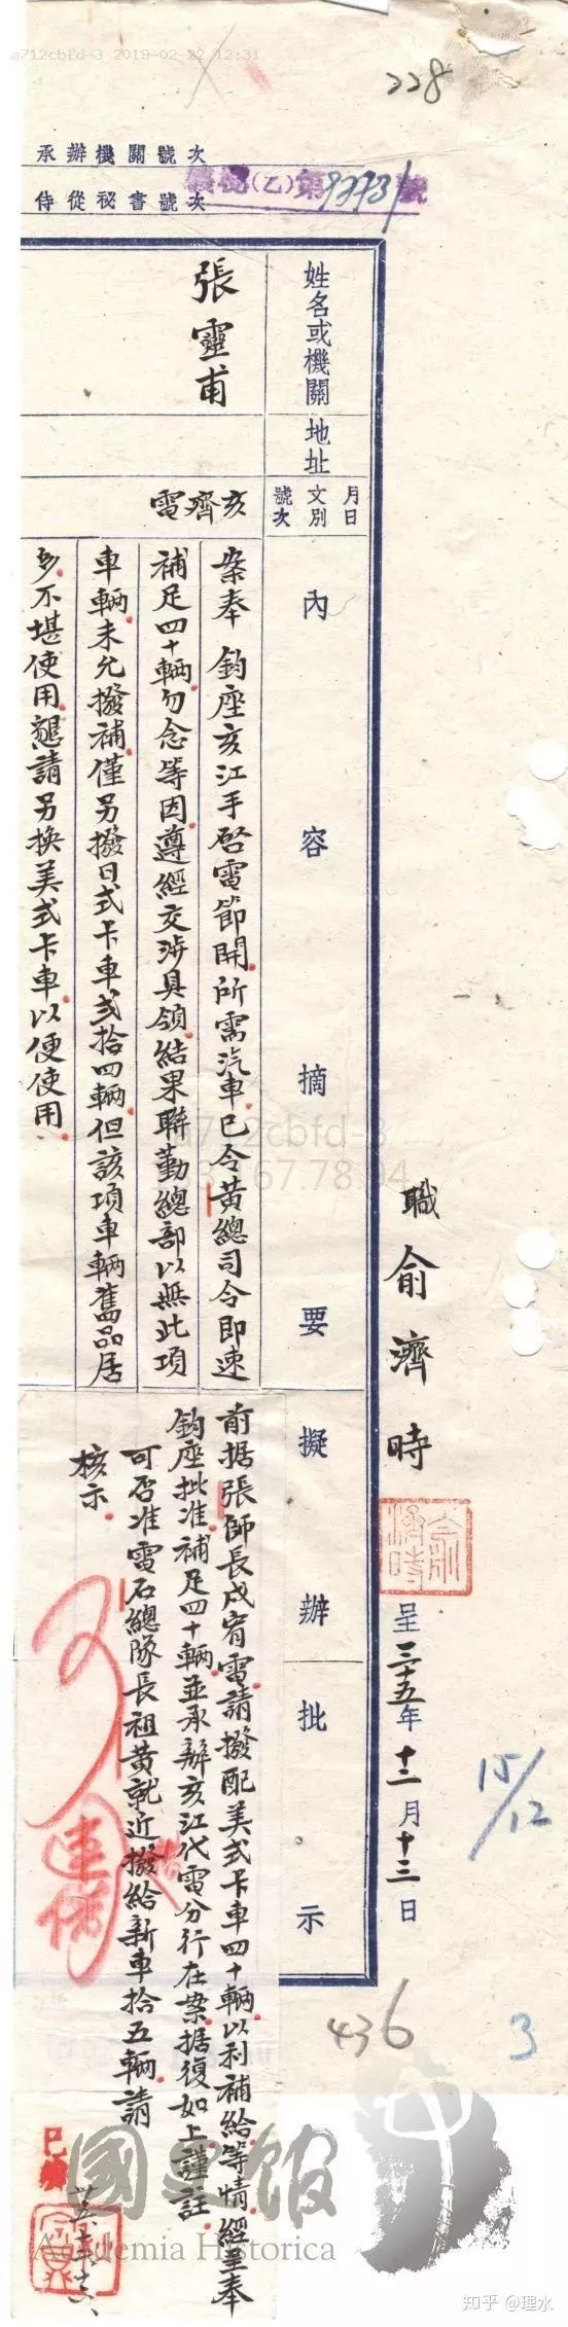 a712cbfd-3 2019-02-22 12:31
228
承辦機關號次
侍從祕書號次
(乙)第9773號
姓名或機關
地址
月日
文別
號次
內容摘要
擬辦
批示
張靈甫
亥齊電
案奉 鈞座亥江手啓電節開所需汽車已令黃總司令即速
補足四十輛勿念等因遵經交涉具領結果聯勤總部以無此項
車輛未允撥補僅另撥日式卡車貳拾四輛但該項車輛舊品居
多不堪使用懇請另換美式卡車以便使用
前据張師長戍宥電請撥配美式卡車四十輛以利補給等情經呈奉
鈞座批准補足四十輛並承辦亥江代電分行在案据復如上謹註
可否准電石總隊長祖黃就近撥給新車拾五輛請
核示
可
職俞濟時
呈三十五年十二月十三日
15/12
436
3
a712cbfd-3
67.78.94
國史館
Academia Historica
知乎 @理水